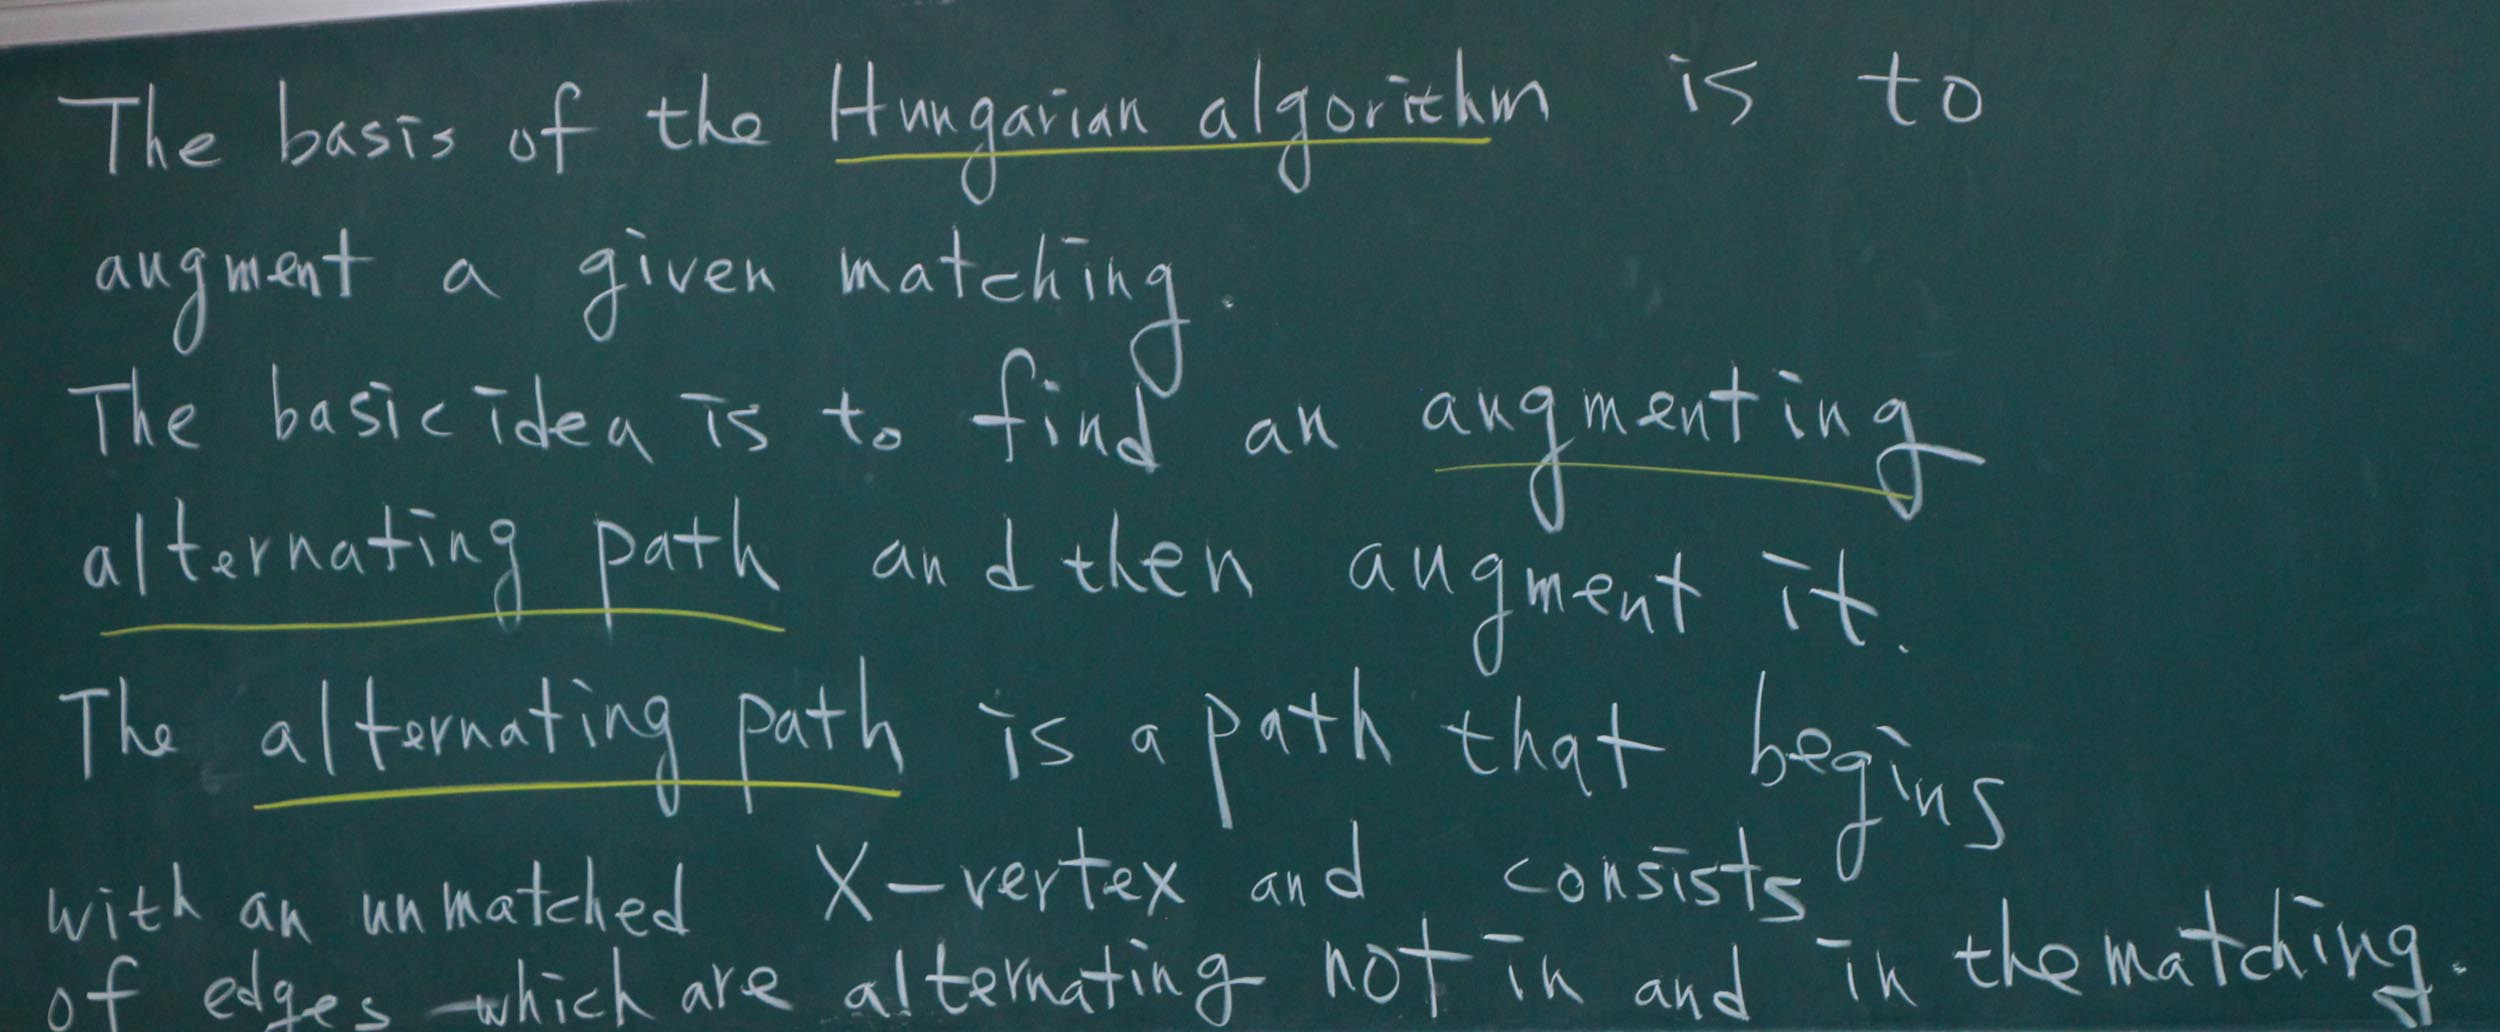 The basis of the Hungarian algorithm is to
augment a given matching.
The basic idea is to find an augmenting
alternating path and then augment it.
The alternating path is a path that begins
with an unmatched X-vertex and consists
of edges which are alternating not in and in the matching.